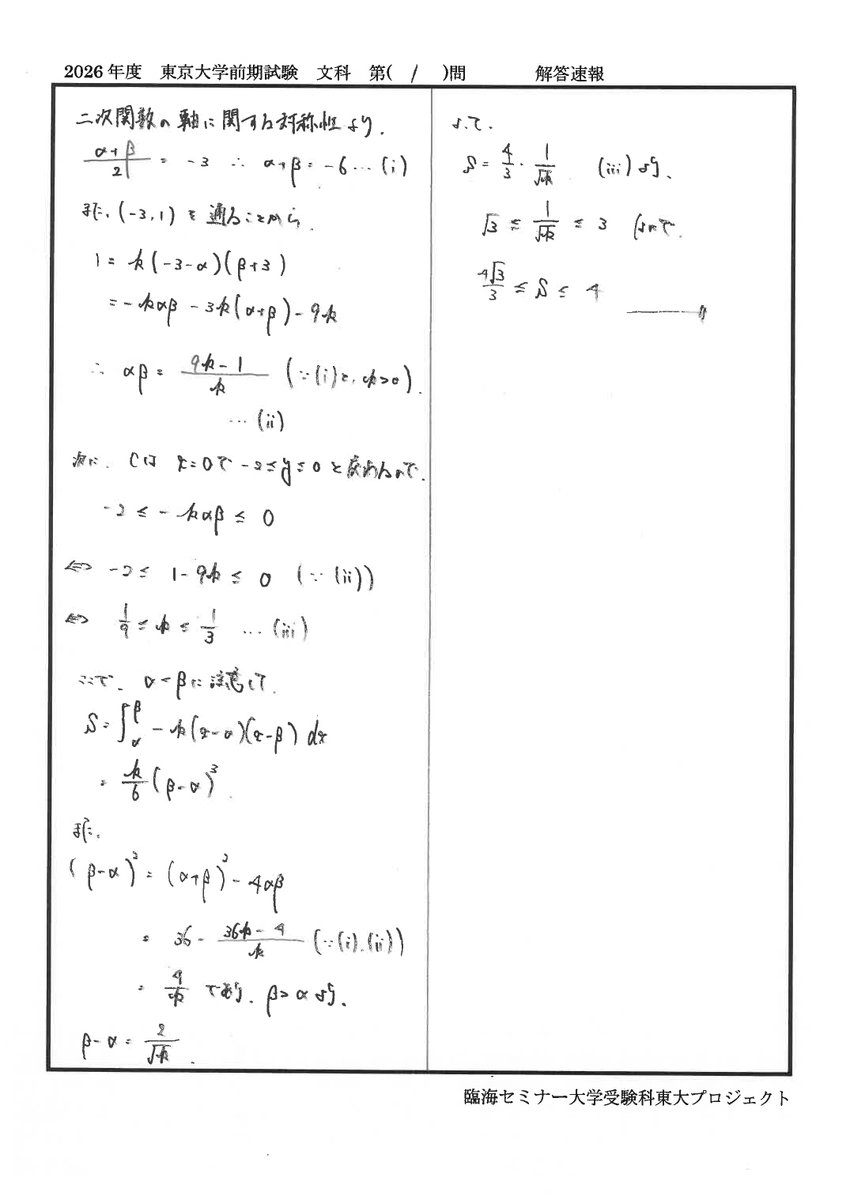 2026年度 東京大学前期試験 文科 第( 1 )問 解答速報
二次関数の軸に関する対称性より.
(α+β)/2 = -3 ∴ α+β = -6 … (i)
また, (-3, 1) を通ることから.
1 = k(-3-α)(β+3)
= -kαβ - 3k(α+β) - 9k
∴ αβ = (9k-1)/k (∵(i)と, k>0).
… (ii)
次に. Cは x=0で -2≤y≤0 と交わるので.
-2 ≤ -kαβ ≤ 0
⇔ -2 ≤ 1-9k ≤ 0 (∵ (ii))
⇔ 1/9 ≤ k ≤ 1/3 … (iii)
ここで. α<βに注意して.
S = ∫_α^β -k(x-α)(x-β) dx
= k/6 (β-α)^3.
また,
(β-α)^2 = (α+β)^2 - 4αβ
= 36 - (36k-4)/k (∵(i).(ii))
= 4/k であり. β>α より.
β-α = 2/√k.
よって.
S = 4/3 · 1/√k. (iii)より.
√3 ≤ 1/√k ≤ 3 なので.
4√3/3 ≤ S ≤ 4
臨海セミナー大学受験科東大プロジェクト